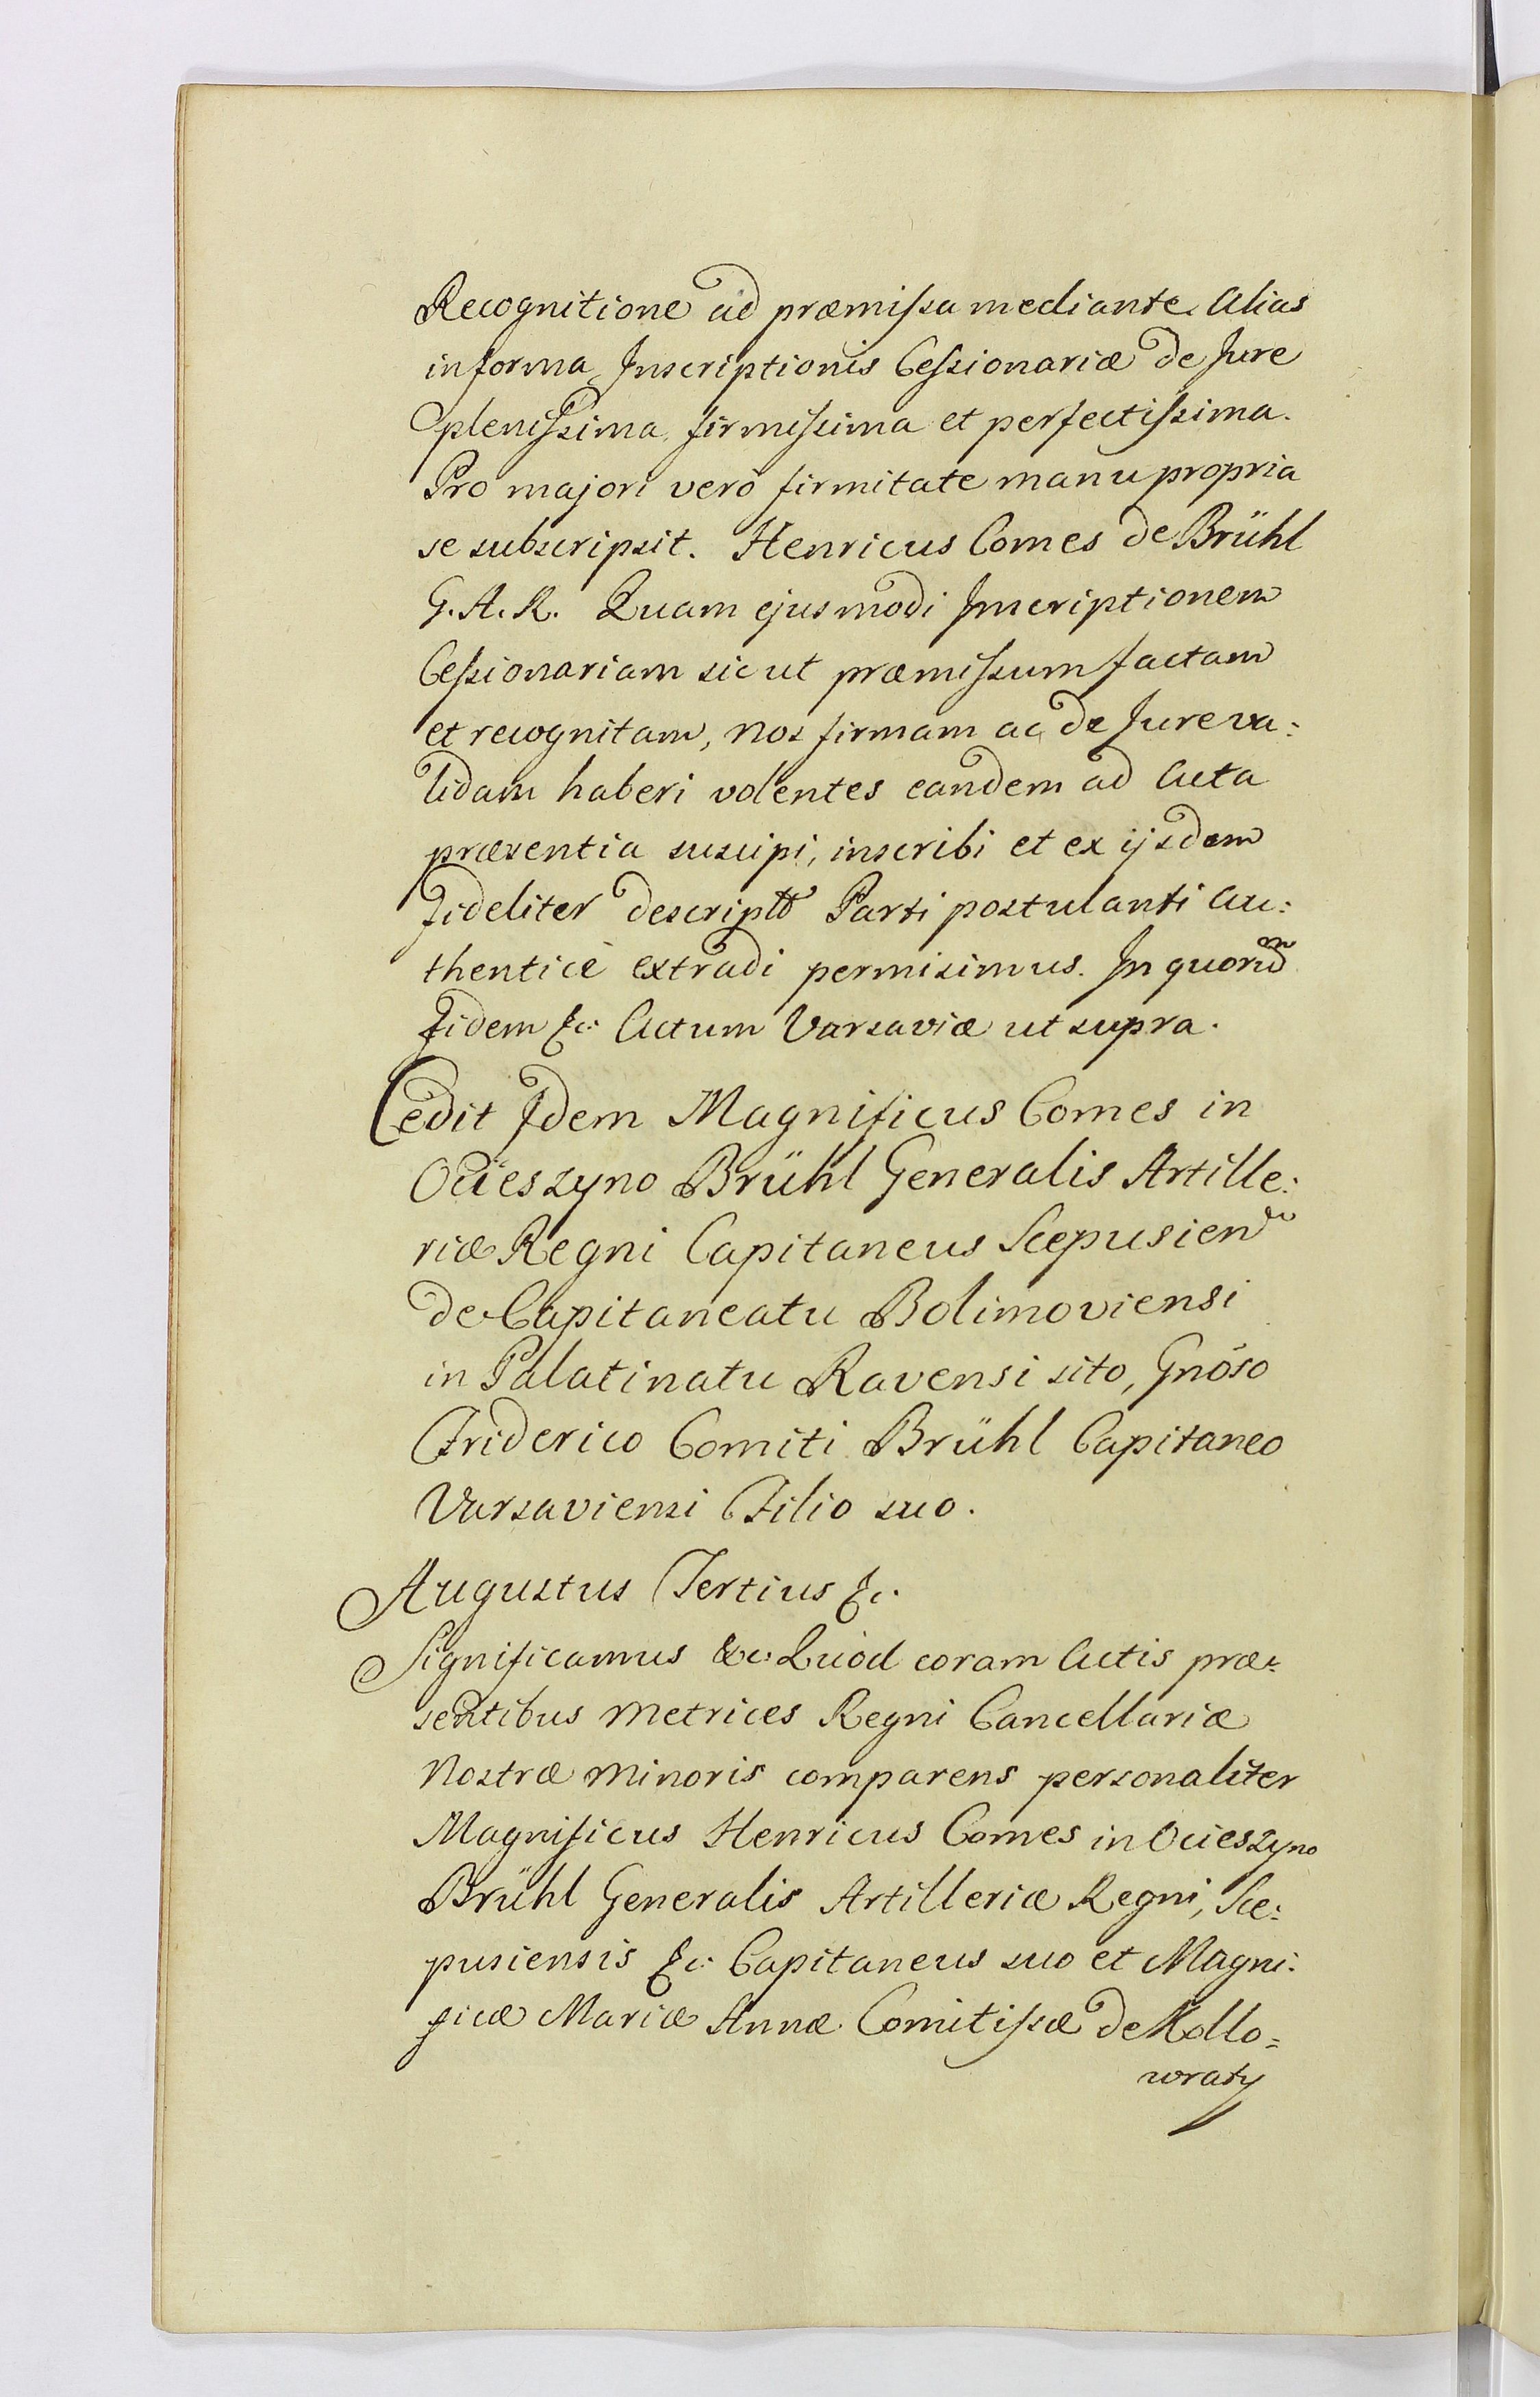 Recognitione ad præmissa mediante. Alias
in forma Inscriptionis Cessionariæ de Jure
plenissima, firmissima et perfectissima.
Pro majori verò firmitate manu propria
se subscripsit. Henricus Comes de Brühl
G. A. R. Quam ejusmodi Inscriptionem
Cessionariam sic ut præmissum factam
et recognitam, nos firmam ac de Jure va:
lidam haberi volentes eandem ad Acta
præsentia suscipi, inscribi et ex ijsdem
fideliter descriptã Parti postulanti Au:
thenticè extradi permisimus. In quorũ
Fidem &c: Actum Varsaviæ ut supra.
Cedit Idem Magnificus Comes in
Ocieszyno Brühl Generalis Artille:
riæ Regni Capitaneus Scepusien
de Capitaneatu Bolimoviensi
in Palatinatu Ravensi sito, Gnõso
Friderico Comiti Brühl Capitaneo
Varsaviensi Filio suo.
Augustus Tertius &c.
Significamus &c: Quod coram Actis præ:
sentibus Metrices Regni Cancellariæ
Nostræ Minoris comparens personaliter
Magnificus Henricus Comes in Ocieszyno
Brühl Generalis Artilleriæ Regni, Sce:
pusiensis &c: Capitaneus suo et Magni:
ficæ Mariæ Annæ Comitissæ de Kollo=
wraty